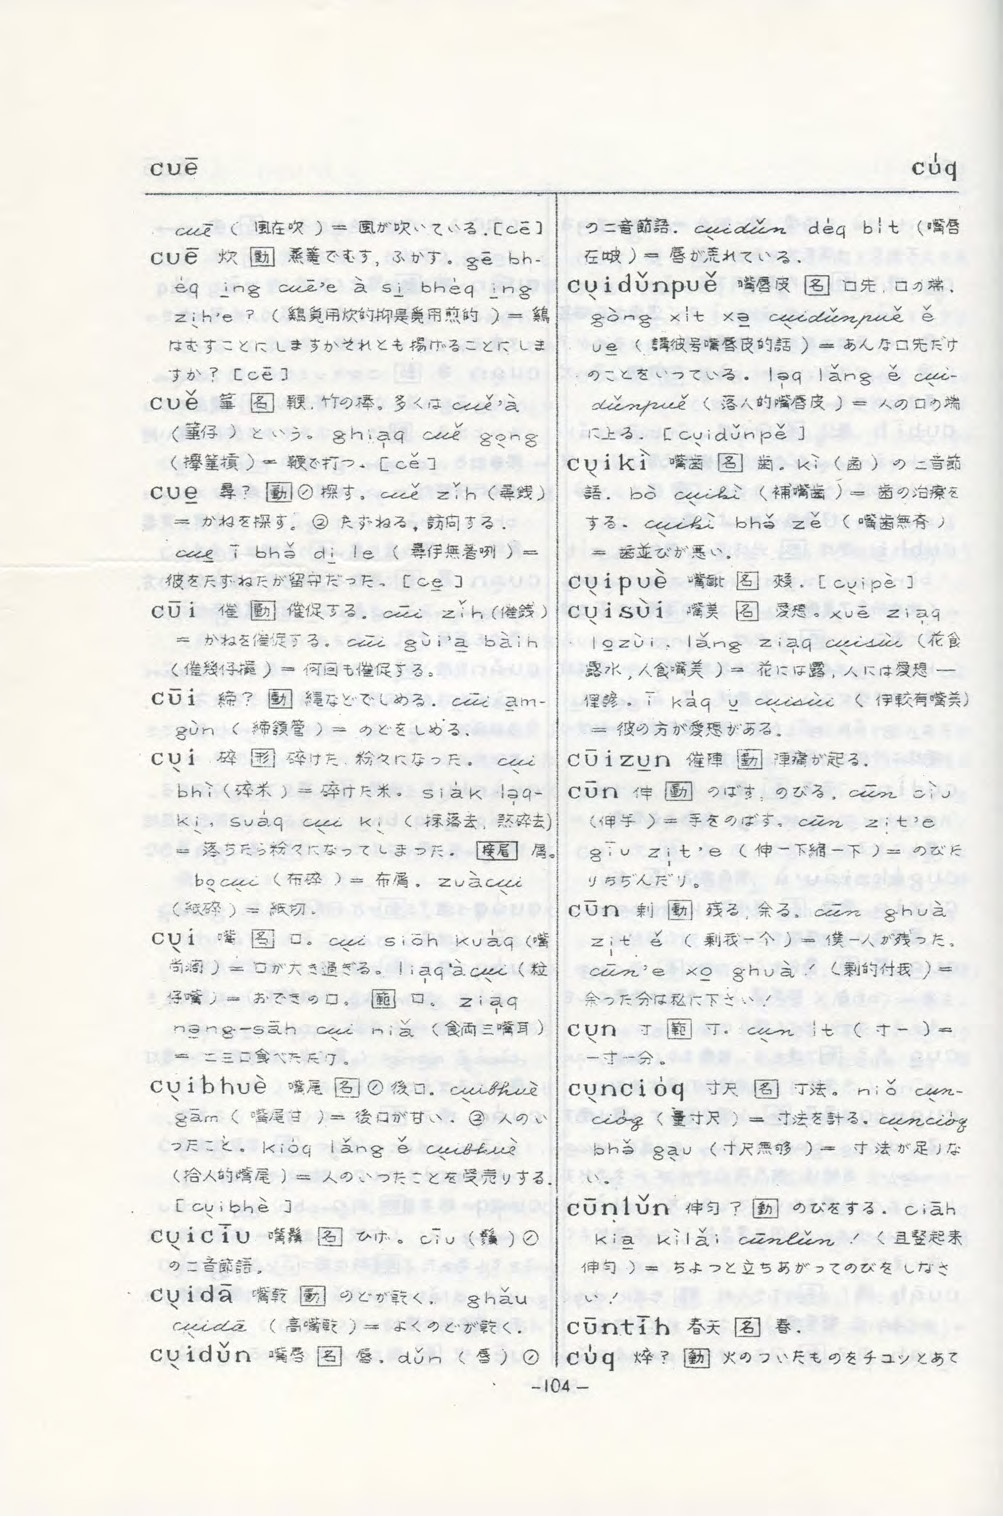 cuē
cu̍q
cuē （ 風在吹 ）＝ 風が吹いている.[cē]
cuē 炊 動 蒸篭でむす, ふかす。gē bh-
ing cuē'e à si̱ ing
zi̍h'e ? （ 鶏 用炊的抑是 用煎的 ）＝ 鶏
はむすことにしますかそれとも揚げることにしま
すか？[cē]
cuě 箠 名 鞭.竹の棒。多くは cuě'à
（箠仔 ）という。ghia̱q cuě go̱ng
（ 箠摃 ）＝ 鞭で打つ.[cě]
cue̱ 尋？ 動 ① 探す。cuē zǐh（尋銭）
＝ かねを探す。② たずねる, 訪問する.
cue̱ ī bhǎ di̱ le（ 尋伊無著咧 ）＝
彼をたずねたが留守だった.[ce̱]
cūi 催 動 催促する。cūi zǐh（催銭）
＝ かねを催促する. cūi gùi'a̱ bàih
（催幾仔擺 ）＝ 何回も催促する。
cūi 締？ 動 縄などでしめる. cūi a̱m-
gùn （ 締頷管 ）＝ のどをしめる.
cu̱i 碎 形 砕けた 粉々になった。cu̱i
bhì（碎米 ）＝ 砕けた米。siak la̱q-
ki̱, suáq cu̱i ki̱ （ 落去, 煞碎去）
＝ 落ちたら粉々になってしまった. 接尾 屑。
bo̱cui （布碎 ）＝ 布屑. zuàcu̱i
（紙碎 ）＝ 紙切.
cu̱i 嘴 名 口。cu̱i siōh kuáq（嘴
尚濶 ）＝ 口が大き過ぎる。lia̱q'àcu̱i（粒
仔嘴 ）＝ おできの口。範 口. zia̱q
nā̱ng-sāh cu̱i niǎ （食両三嘴耳）
＝ 二三口食べただけ。
cu̱ibhuè 嘴尾 名 ① 後口. cu̱ibhuè
gām（ 嘴尾甘 ）＝ 後口が甘い. ② 人のい
ったこと。kióq lǎng ě cu̱ibhuè
（拾人的嘴尾 ）＝ 人のいったことを受売りする.
[cu̱ibhè ]
cu̱icīu 嘴鬚 名 ひげ。cīu（鬚）①
の二音節語.
cu̱idā 嘴乾 動 のどが乾く. ghǎu
cu̱idā （ 嘴乾 ）＝ よくのどが乾く.
cu̱idǔn 嘴唇 名 唇. dǔn （ 唇）①
の二音節語. cu̱idǔn deq bit （嘴唇
在 ）＝ 唇が荒れている.
cu̱idǔnpuě 嘴唇皮 名 口先, 口の端.
gòng xit xa̱ cu̱idǔnpuě ě
ue̱ （ 講彼号嘴唇皮的話 ）＝ あんな口先だけ
のことをいっている。la̱q lǎng ě cu̱i-
dǔnpuě （ 落人的嘴唇皮 ）＝ 人の口の端
に上る.[cu̱idǔnpě]
cu̱ikì 嘴歯 名 歯. kì（歯 ）の二音節
語. bò cu̱ikì （補嘴歯 ）＝ 歯の治療を
する. cu̱ikì bhǎ zě （嘴歯無斉）
＝ 歯並びが悪い.
cu̱ipuè 嘴 名 頬.[cu̱ipè]
cu̱isùi 嘴美 名 愛想。xuē zia̱q
lo̱zùi, lǎng zia̱q cu̱isùi（花食
露水, 人食嘴美 ）＝ 花には露, 人には愛想——
俚諺. ī káq u̱ cu̱isùi （ 伊較有嘴美）
＝ 彼の方が愛想がある.
cūizu̱n 催陣 動 陣痛が起る.
cūn 伸 動 のばす, のびる. cūn cìu
（伸手 ）＝ 手をのばす. cūn zi̍t'e
gīu zi̍t'e （伸一下縮一下 ）＝ のびた
りちぢんだり。
cūn 剰 動 残る, 余る. cūn ghuà
zi̍t ě （ 剰我一个 ）＝ 僕一人が残った.
cūn'e xo̱ ghuà !（剰的付我 ）＝
余った分は私に下さい！
cu̱n 寸 範 寸. cu̱n it （ 寸一 ）＝
一寸一分。
cu̱ncióq 寸尺 名 寸法。niǒ cu̱n-
cióq （量寸尺 ）＝ 寸法を計る. cu̱ncióq
bhǎ ga̱u （寸尺無够 ）＝ 寸法が足りな
い.
cūnlǔn 伸 ？ 動 のびをする. ciāh
kia̱ kìlǎi cūnlǔn !（ 且竪起来
伸 ）＝ ちょっと立ちあがってのびをしなさ
い！
cūntīh 春天 名 春.
cu̍q 焠？ 動 火のついたものをチュッとあて
-104-